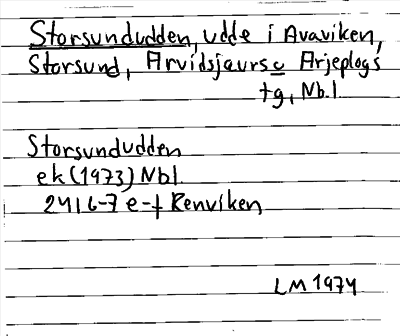 Storsundudden, udde i Avaviken,
Storsund, Arvidsjaurs o Arjeplogs
tg, Nb.l.
Storsundudden
ek (1973) Nbl.
2416-7 e-f Renviken
LM 1974